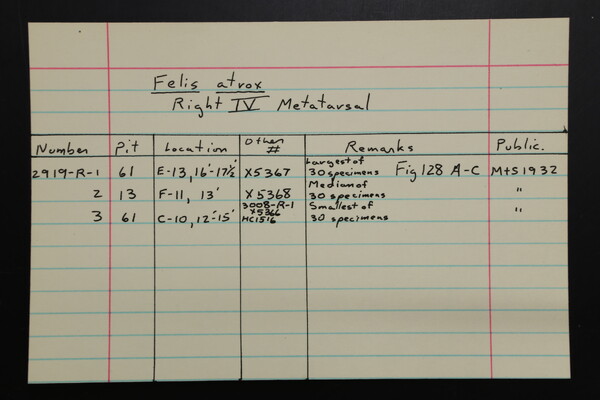 Felis atrox
Right IV Metatarsal
Number Pit Location Other # Remarks Public.
2919-R-1 61 E-13, 16'-17½' X5367 Largest of 30 specimens Fig 128 A-C M+S 1932
2 13 F-11, 13' X5368 Median of 30 specimens "
3 61 C-10, 12'-15' 3008-R-1 X5366 HC1516 Smallest of 30 specimens "